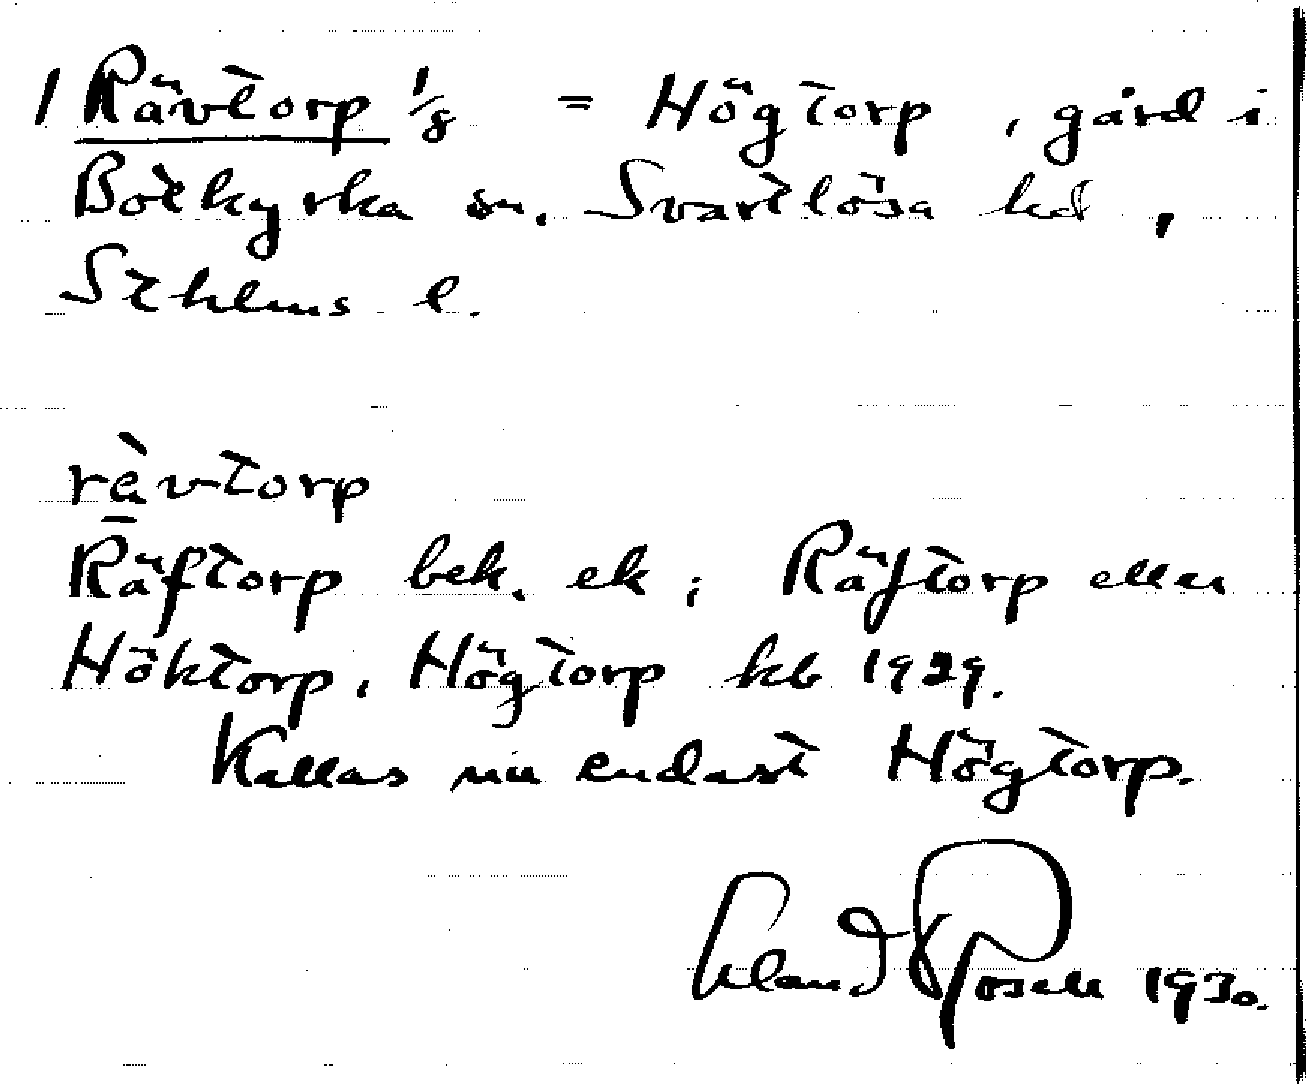 1 Rävtorp 1/8 = Högtorp, gård i
Botkyrka sn. Svartlösa hd,
Sthlms l.
rävtorp
Räftorp bek. ek; Räftorp eller
Höktorp, Högtorp kb 1929.
Kallas nu endast Högtorp.
Erland Rosell 1930.